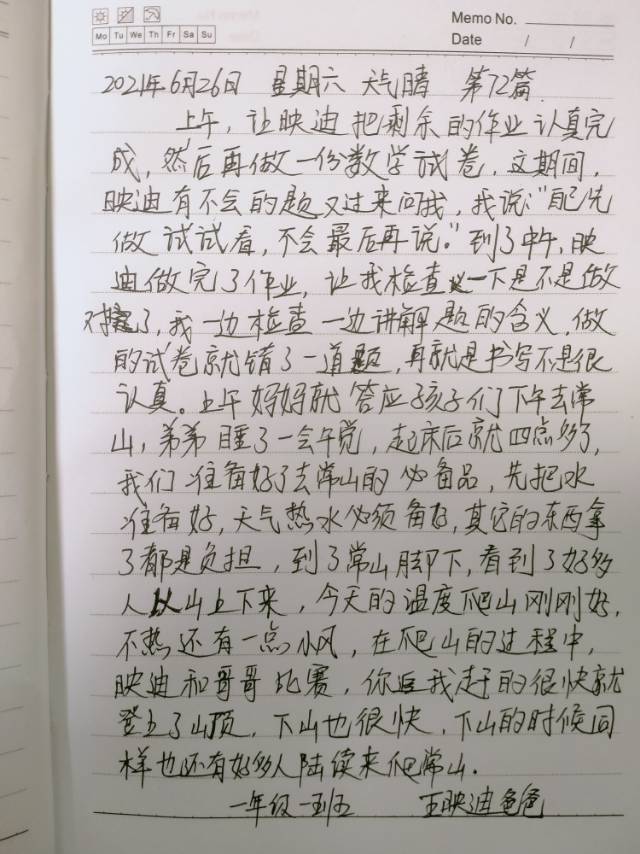 Memo No.
Mo Tu We Th Fr Sa Su
Date / /
2021年6月26日 星期六 天气晴 第72篇
上午，让映迪把剩余的作业认真完
成，然后再做一份数学试卷，这期间，
映迪有不会的题又过来问我，我说：“自己先
做试试看，不会最后再说。”到了中午，映
迪做完了作业，让我检查一下是不是做
对了，我一边检查一边讲解题的含义，做
的试卷就错了一道题，再就是书写不是很
认真。上午妈妈就答应孩子们下午去常
山，弟弟睡了一会午觉，起床后就四点多了，
我们准备好了去常山的必备品，先把水
准备好，天气热水必须备好，其它的东西拿
了都是负担，到了常山脚下，看到了好多
人从山上下来，今天的温度爬山刚刚好，
不热还有一点小风，在爬山的过程中，
映迪和哥哥比赛，你追我赶的很快就
登上了山顶，下山也很快，下山的时候同
样也还有好多人陆续来爬常山.
一年级一班 王映迪爸爸